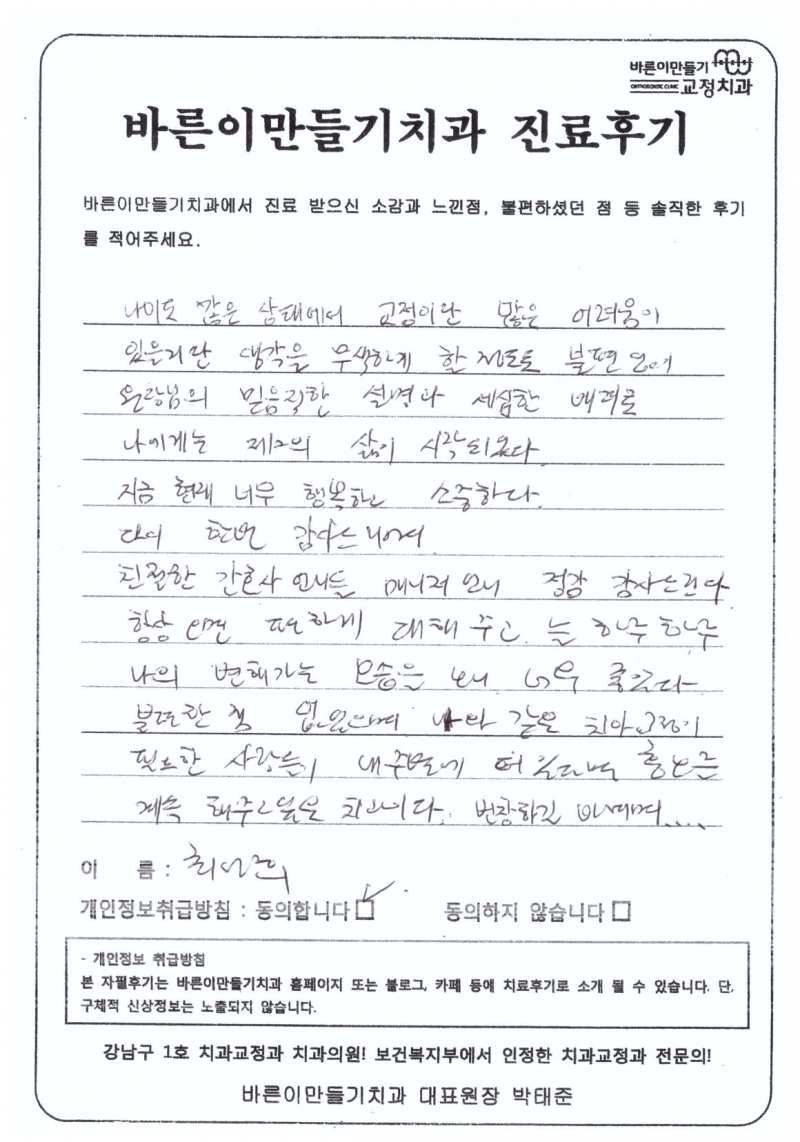 바른이만들기
ORTHODONTIC CLINIC 교정치과
바른이만들기치과 진료후기
바른이만들기치과에서 진료 받으신 소감과 느낀점, 불편하셨던 점 등 솔직한 후기
를 적어주세요.
나이도 많은 상태에서 교정이란 많은 어려움이
있을거란 생각을 무색하게 할 정도로 불편 없이
원장님의 믿음직한 설명과 세심한 배려로
나에게는 제2의 삶이 시작되었다.
지금 현재 너무 행복하고 소중하다.
다시 한번 감사드리며
친절한 간호사 언니들 매니저 언니 정말 감사드린다
항상 대해 주고 늘 하루 하루
나의 변해가는 모습을 보니 너무 좋았다
불편한 점 없었으며 나와 같은 치아교정이
필요한 사람들이 내주변에 더 있다면 홍보를
계속 해주고 싶은 치과이다. 번창하길 바라며....
이 름 :
개인정보취급방침 : 동의합니다 동의하지 않습니다
- 개인정보 취급방침
본 자필후기는 바른이만들기치과 홈페이지 또는 블로그, 카페 등에 치료후기로 소개 될 수 있습니다. 단,
구체적 신상정보는 노출되지 않습니다.
강남구 1호 치과교정과 치과의원! 보건복지부에서 인정한 치과교정과 전문의!
바른이만들기치과 대표원장 박태준